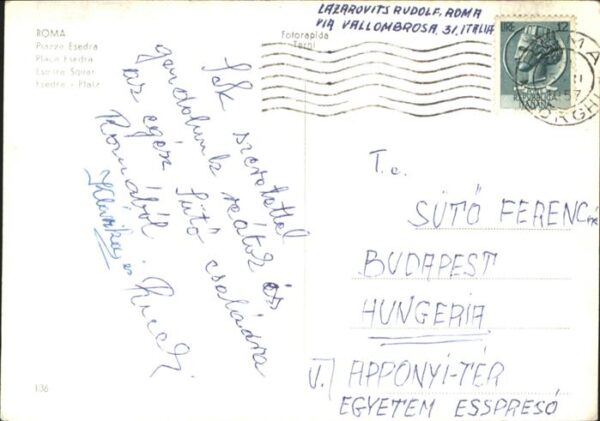 ROMA
Piazza Esedra
Place Esedra
Esedra Squar
Esedra - Platz
Fotorapida
Terni
LAZAROVITS RUDOLF, ROMA
VIA VALLOMBROSA, 31, ITALIA
LIRE 12
REPUBBLICA
ITALIANA
57
Sok szeretettel
gondolunk reátok és
az egész Sütő családra
Romából
Klárika és Rudi
T.c.
SÜTŐ FERENC
BUDAPEST
HUNGERIA
V. APPONYI-TÉR
EGYETEM ESSPRESÓ
136